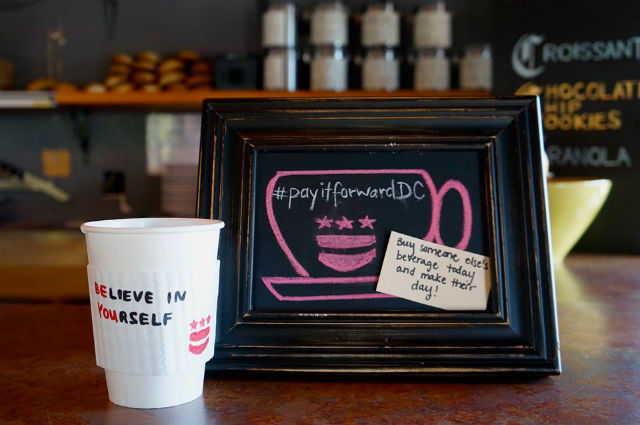 CROISSANT
CHOCOLATE
CHIP
COOKIES
GRANOLA
#payitforwardDC
Buy someone else's
beverage today
and make their
day!
BELIEVE IN
YOURSELF